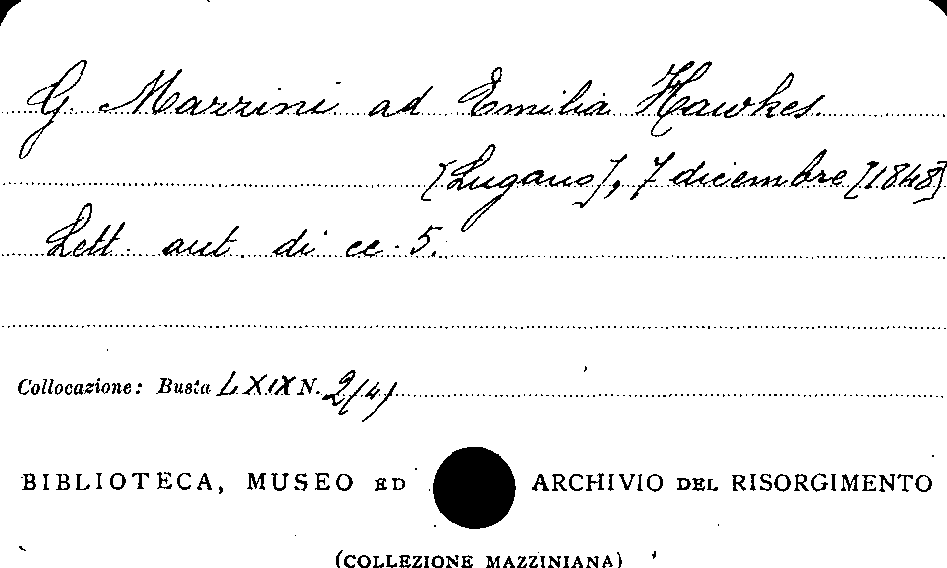 G. Mazzini ad Emilia Hawkes.
[Lugano], 7 dicembre [1848]
Lett. aut. di cc. 5.
Collocazione: Busta LXIX N. 2(4)
BIBLIOTECA, MUSEO ED ARCHIVIO DEL RISORGIMENTO
(COLLEZIONE MAZZINIANA)